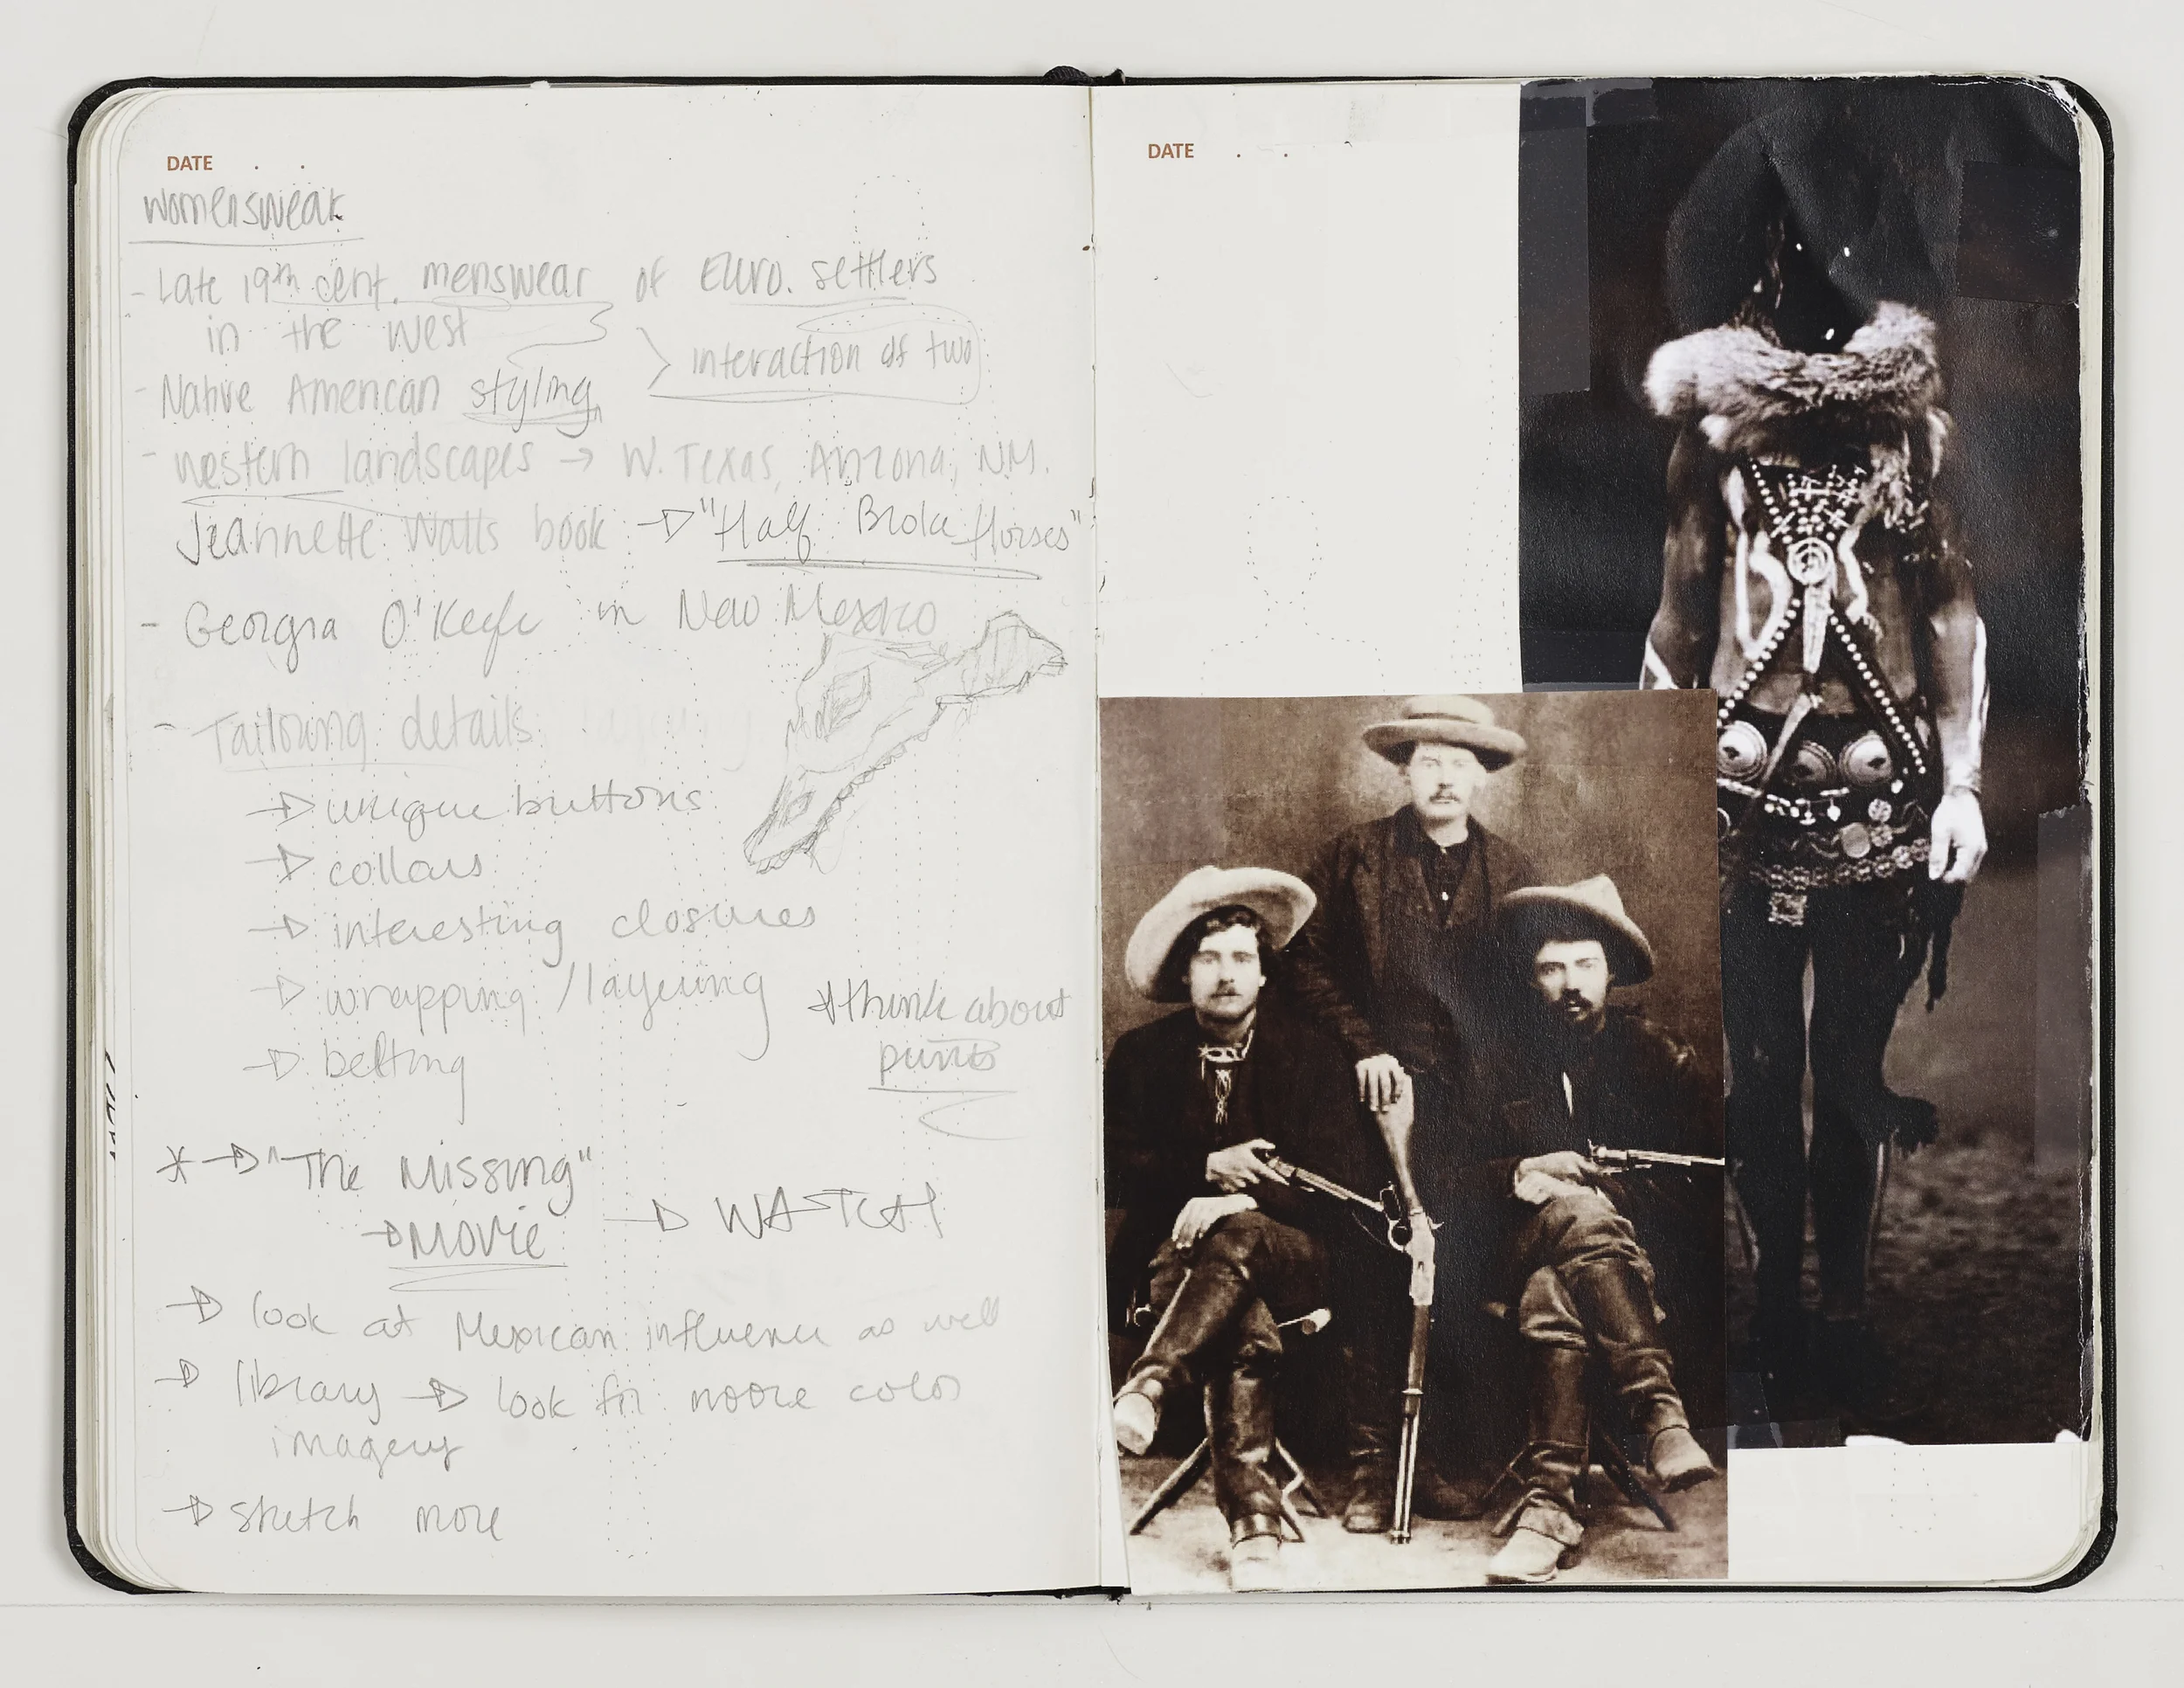 DATE . .
womenswear
- Late 19th cent. menswear of Euro. settlers
in the west
interaction of two
- Native American styling
- western landscapes → W. Texas, Arizona, N.M.
Jeannette Walls book → "Half Broke Horses"
- Georgia O'Keefe in New Mexico
- Tailoring details
→ unique buttons
→ collars
→ interesting closures
→ wrapping / layering
* think about
→ belting
* → "The Missing"
→ MOVIE → WATCH
→ look at Mexican influence as well
→ library → look for moore color
imagery
→ sketch more
DATE . .